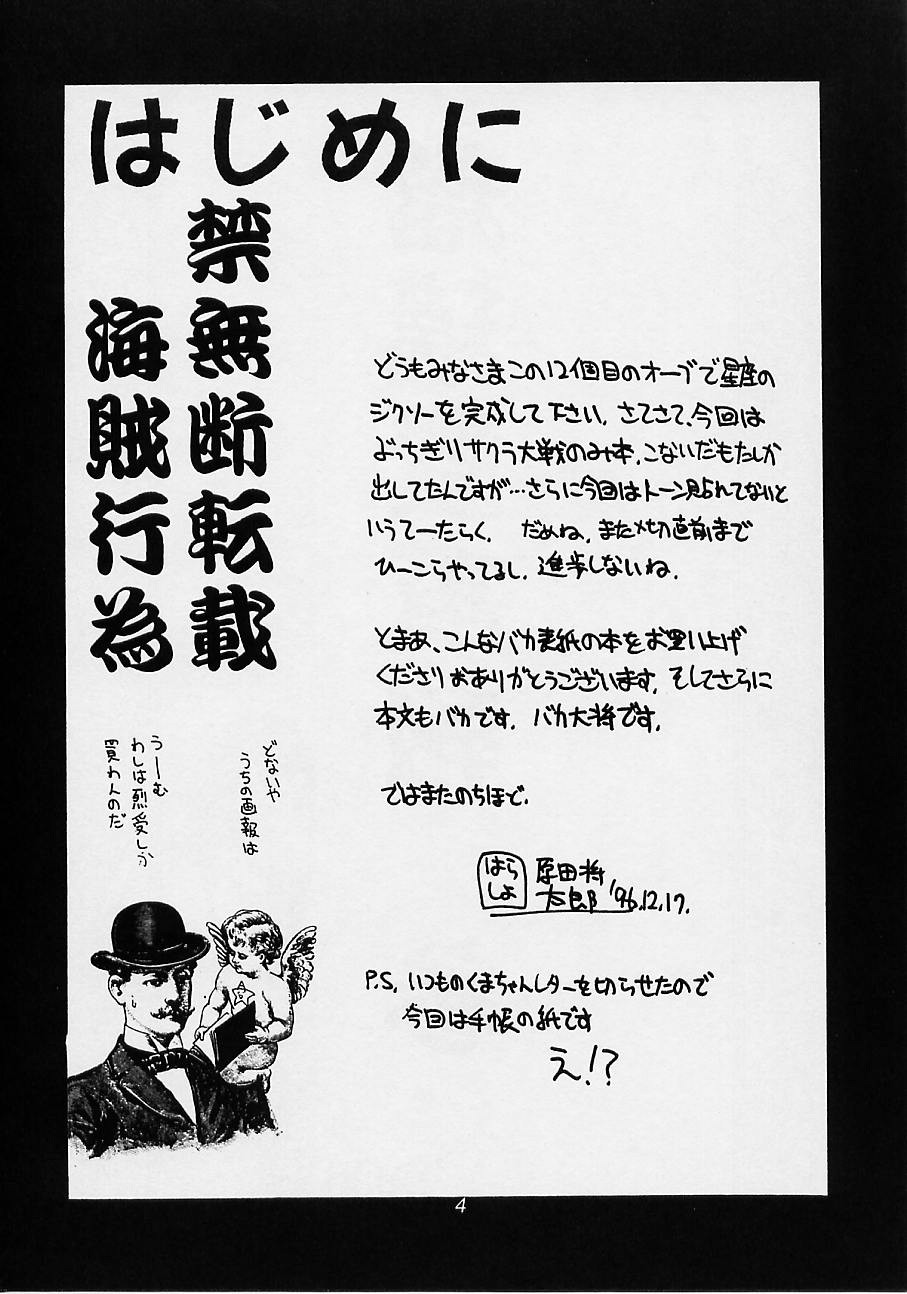 はじめに
禁無断転載
海賊行為
どうもみなさまこの12個目のオーブで星座の
ジクソーを完成して下さい。さてさて、今回は
ぶっちぎりサクラ大戦のみ本。こないだもたしか
出してたんですが…さらに今回はトーン貼れてないと
いうてーたらく。だめね。また〆切直前まで
ひーこらやってるし。進歩しないね。
とまあ、こんなバカ表紙の本をお買い上げ
くださりおありがとうございます。そしてさらに
本文もバカです。バカ大将です。
ではまたのちほど。
はらしょ
原田将
太郎 '96.12.17.
P.S. いつものくまちゃんレターを切らせたので
今回は手帳の紙です
え!?
どないや
うちの画報は
うーむ
わしは烈愛しか
買わんのだ
4